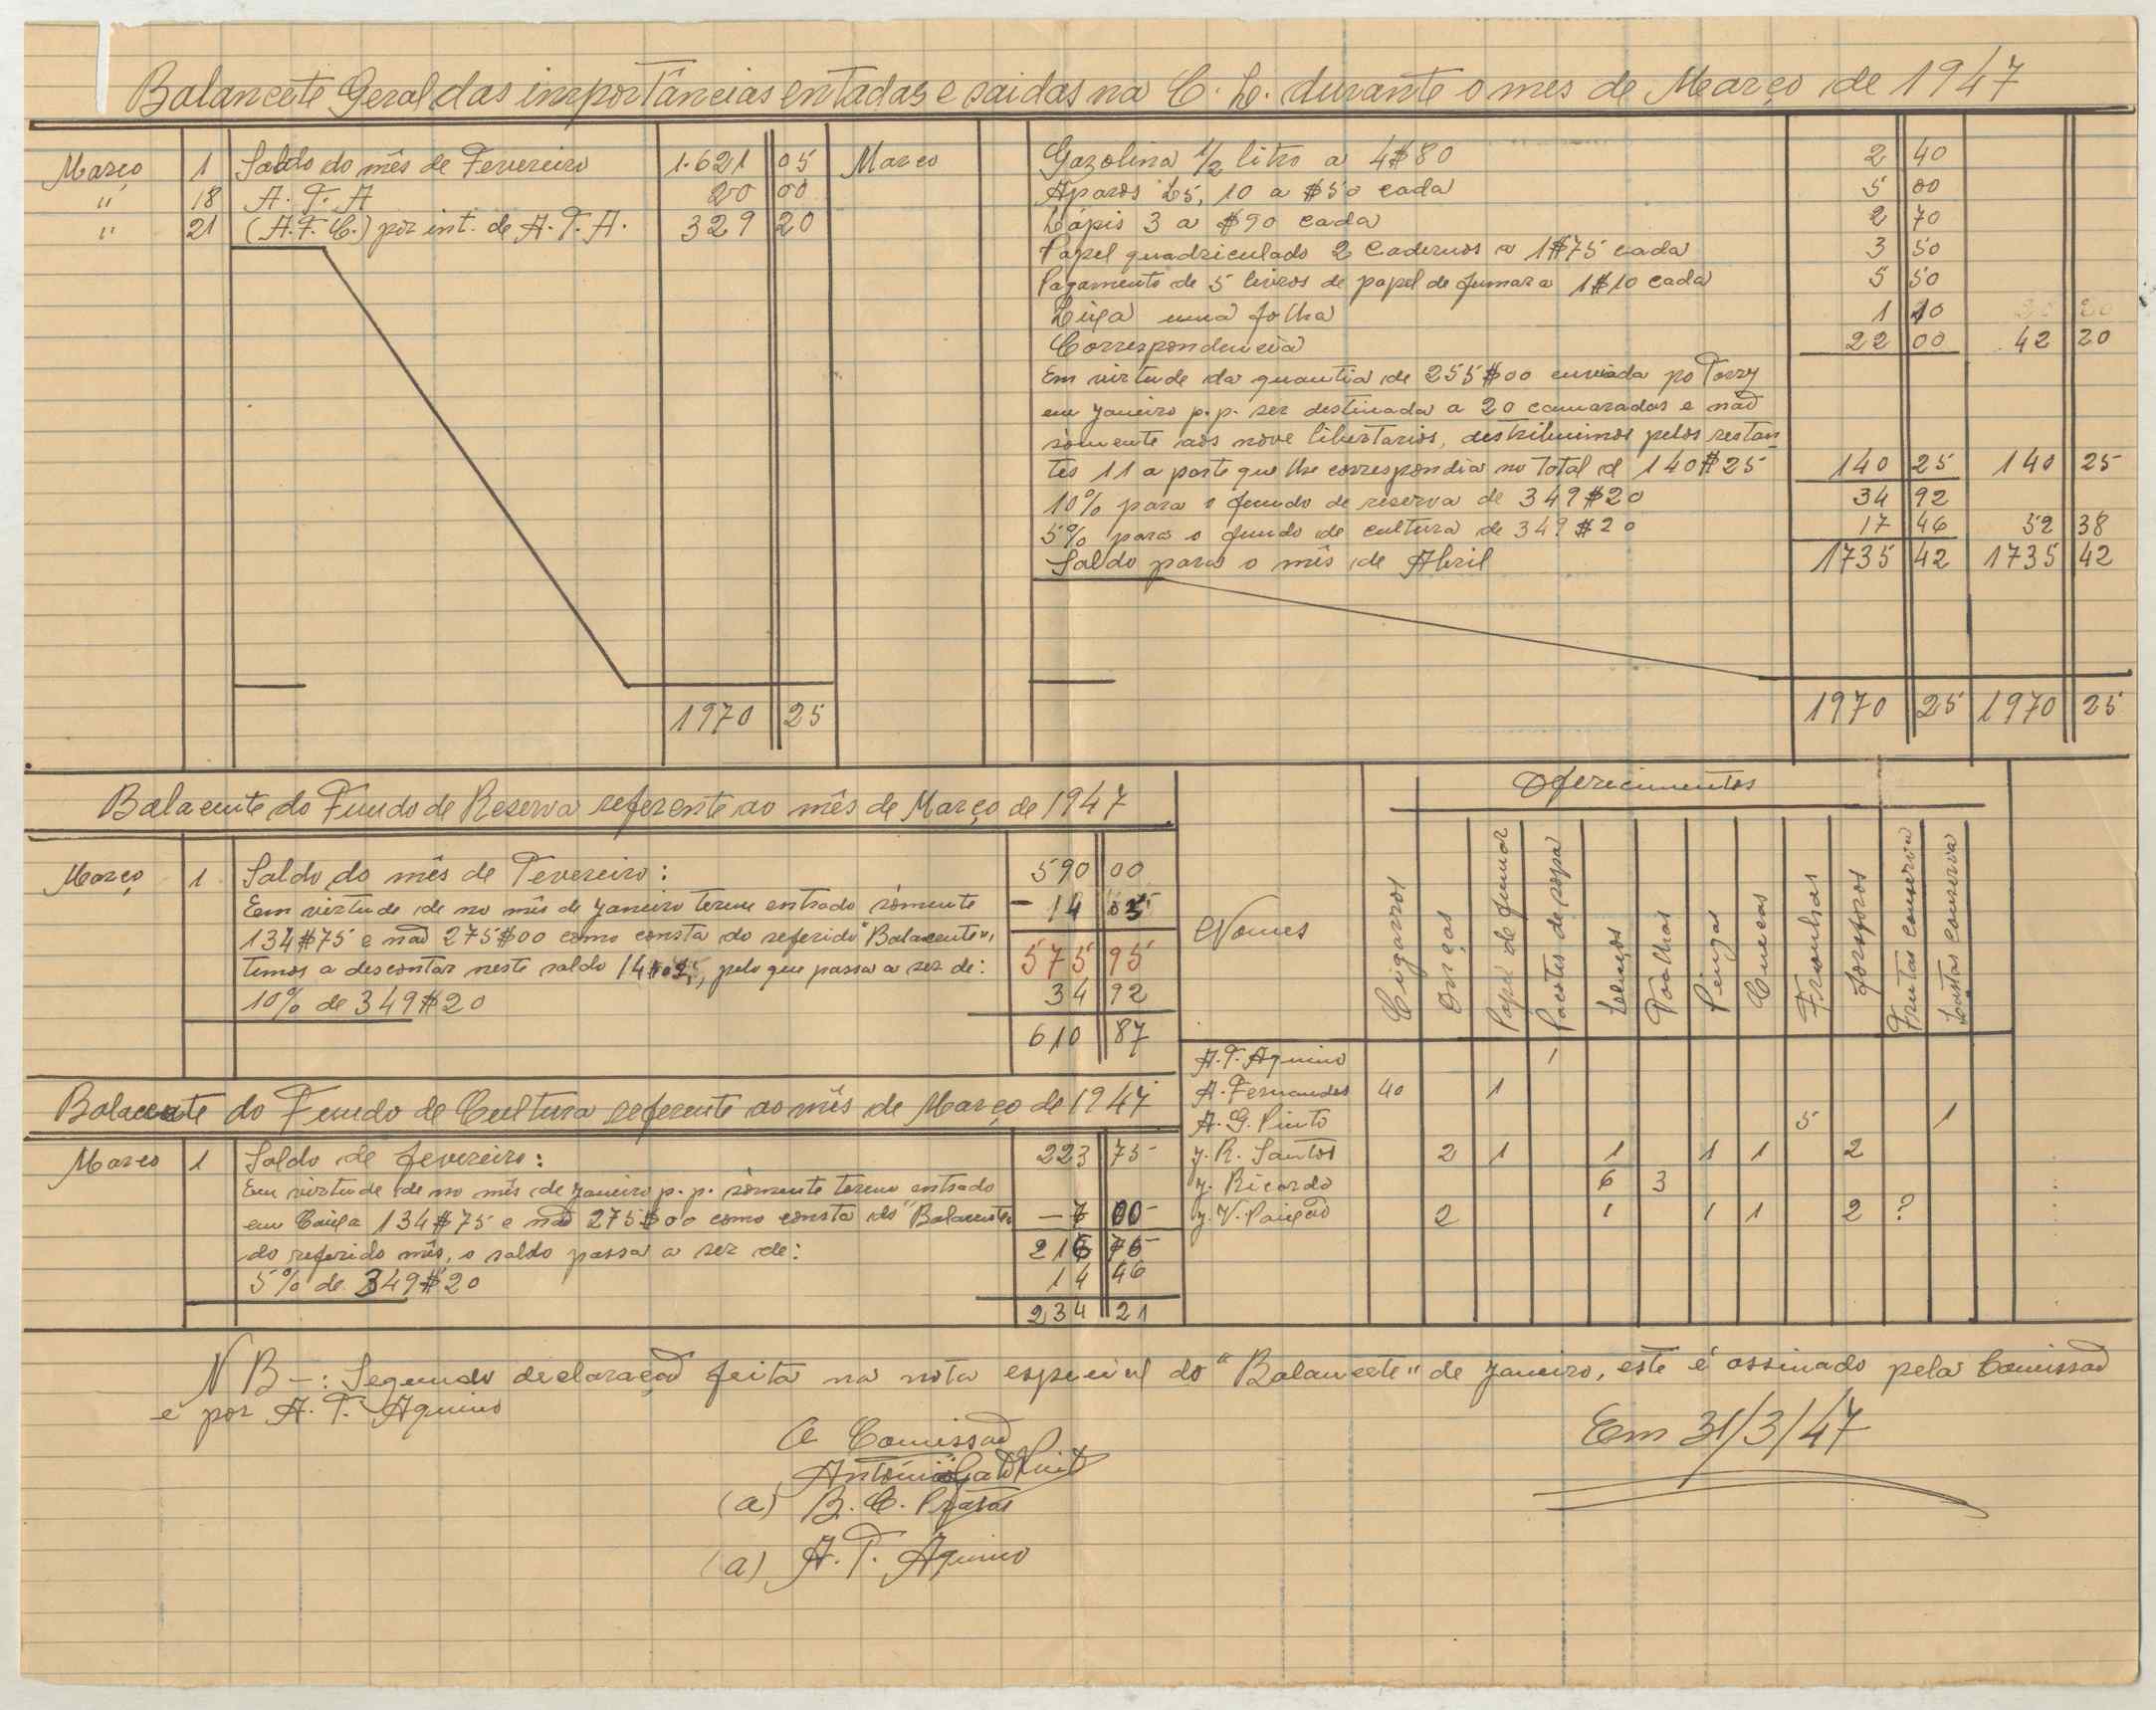 Balancete Geral das importâncias entadas e saidas na C. L. durante o mes de Março de 1947
Março 1 Saldo do mês de Fevereiro 1.621 05
" 18 A. T. A 20 00
" 21 (A. F. C.) por int. de A. T. A. 329 20
1970 25
Marco Gazolina 1/2 litro a 4$80 2 40
Aparos L5, 10 a $50 cada 5 00
Lápis 3 a $90 cada 2 70
Papel quadriculado 2 cadernos a 1$75 cada 3 50
Pagamento de 5 livros de papel de fumar a 1$10 cada 5 50
Lixa uma folha 1 10
Correspondencia 22 00 42 20
Em virtude da quantia de 255$00 enviada po Torry
em Janeiro p.p. ser destinada a 20 camaradas e não
sòmente aos nove libertarios, destribuimos pelos restan-
tes 11 a parte que lhe correspondia no total d 140$25 140 25 140 25
10% para o fundo de reserva de 349$20 34 92
5% para o fundo de cultura de 349$20 17 46 52 38
Saldo para o mês de Abril 1735 42 1735 42
1970 25 1970 25
Balacente do Fundo de Reserva referente ao mês de Março de 1947
Março 1 Saldo do mês de Fevereiro: 590 00
Eem virtude de no mês de Janeiro terem entrado sòmente - 14 05
134$75 e não 275$00 como consta do referido "Balacente",
temos a descontar neste saldo 14$05, pelo que passa a ser de: 575 95
10% de 349$20 34 92
610 87
Balacente do Fundo de Cultura referente ao mês de Março de 1947
Marco 1 Saldo de fevereiro: 223 75
Em virtude de no mês de Janeiro p. p. sòmente terem entrado
em Caixa 134$75 e não 275$00 como consta do "Balacente" - 7 00
do referido mês, o saldo passa a ser de: 216 75
5% de 349$20 14 46
234 21
Oferecimentos
Nomes
Cigarros
Onças
Papel de fumar
Pacotes de sopa
Lenços
Toalhas
Peugas
Cuecas
Fronhas
Fosforos
Frutas conserva
Latas conserva
A. T. Aquino 1
A. Fernandes 40 1
A. G. Pinto 5 1
J. R. Santos 2 1 1 1 1 2
J. Ricardo 6 3
J. V. Paixão 2 1 1 1 2 ?
N B -: Segundo declaração feita na nota especial do "Balancete" de Janeiro, este é assinado pela Comissão
e por A. T. Aquino
Em 31/3/47
A Comissão
António Gato Pinto
(a) B. C.
(a) A. T. Aquino